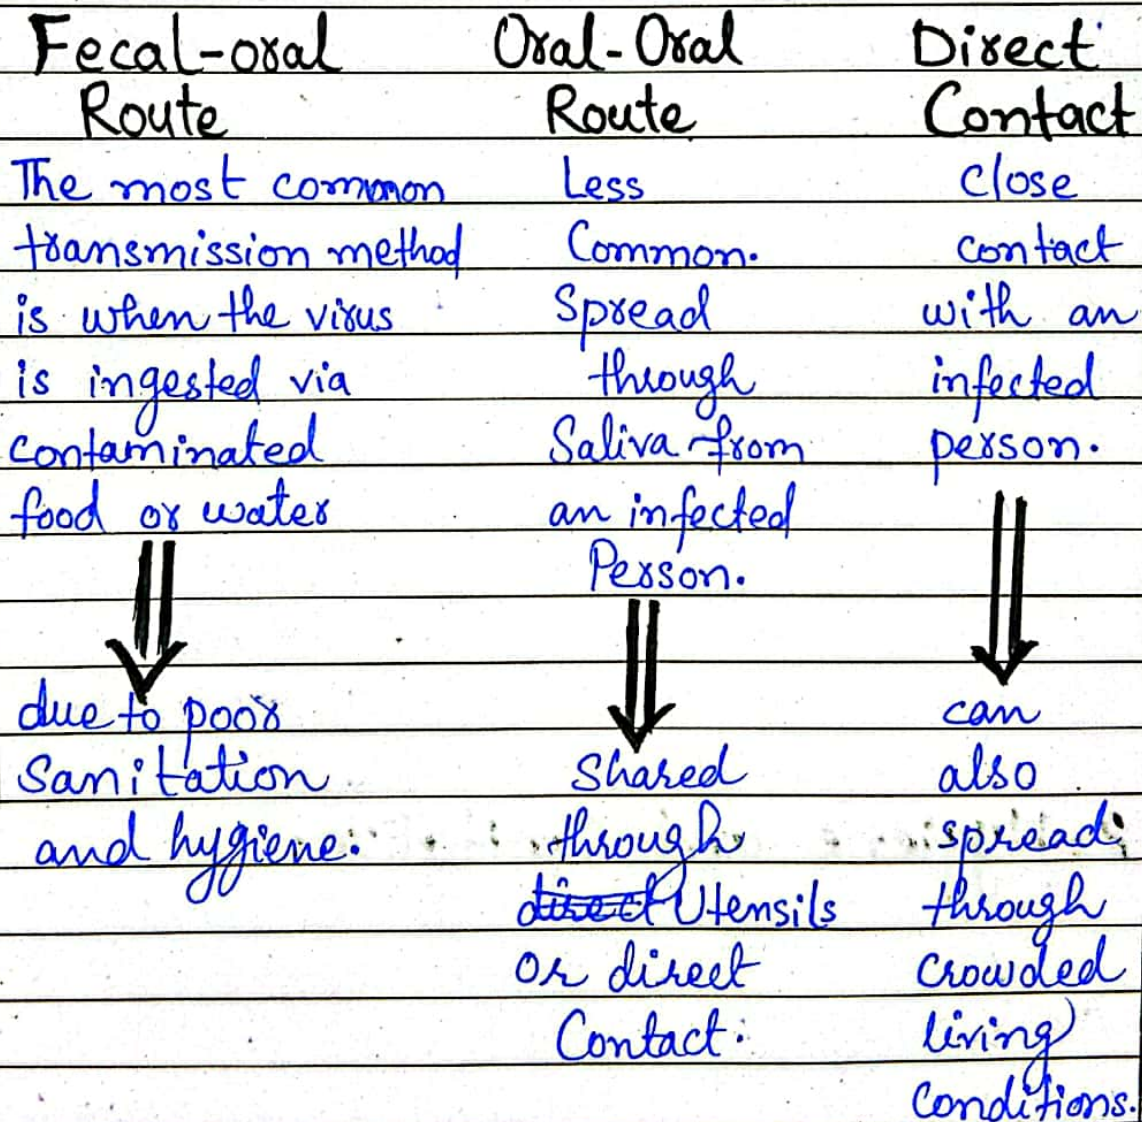 Fecal-oral
Route
The most common
transmission method
is when the virus
is ingested via
contaminated
food or water
due to poor
Sanitation
and hygiene.
Oral-Oral
Route
Less
Common.
Spread
through
Saliva from
an infected
Person.
Shared
through
direct Utensils
or direct
Contact.
Direct
Contact
Close
contact
with an
infected
person.
can
also
spread
through
Crowded
living
Conditions.